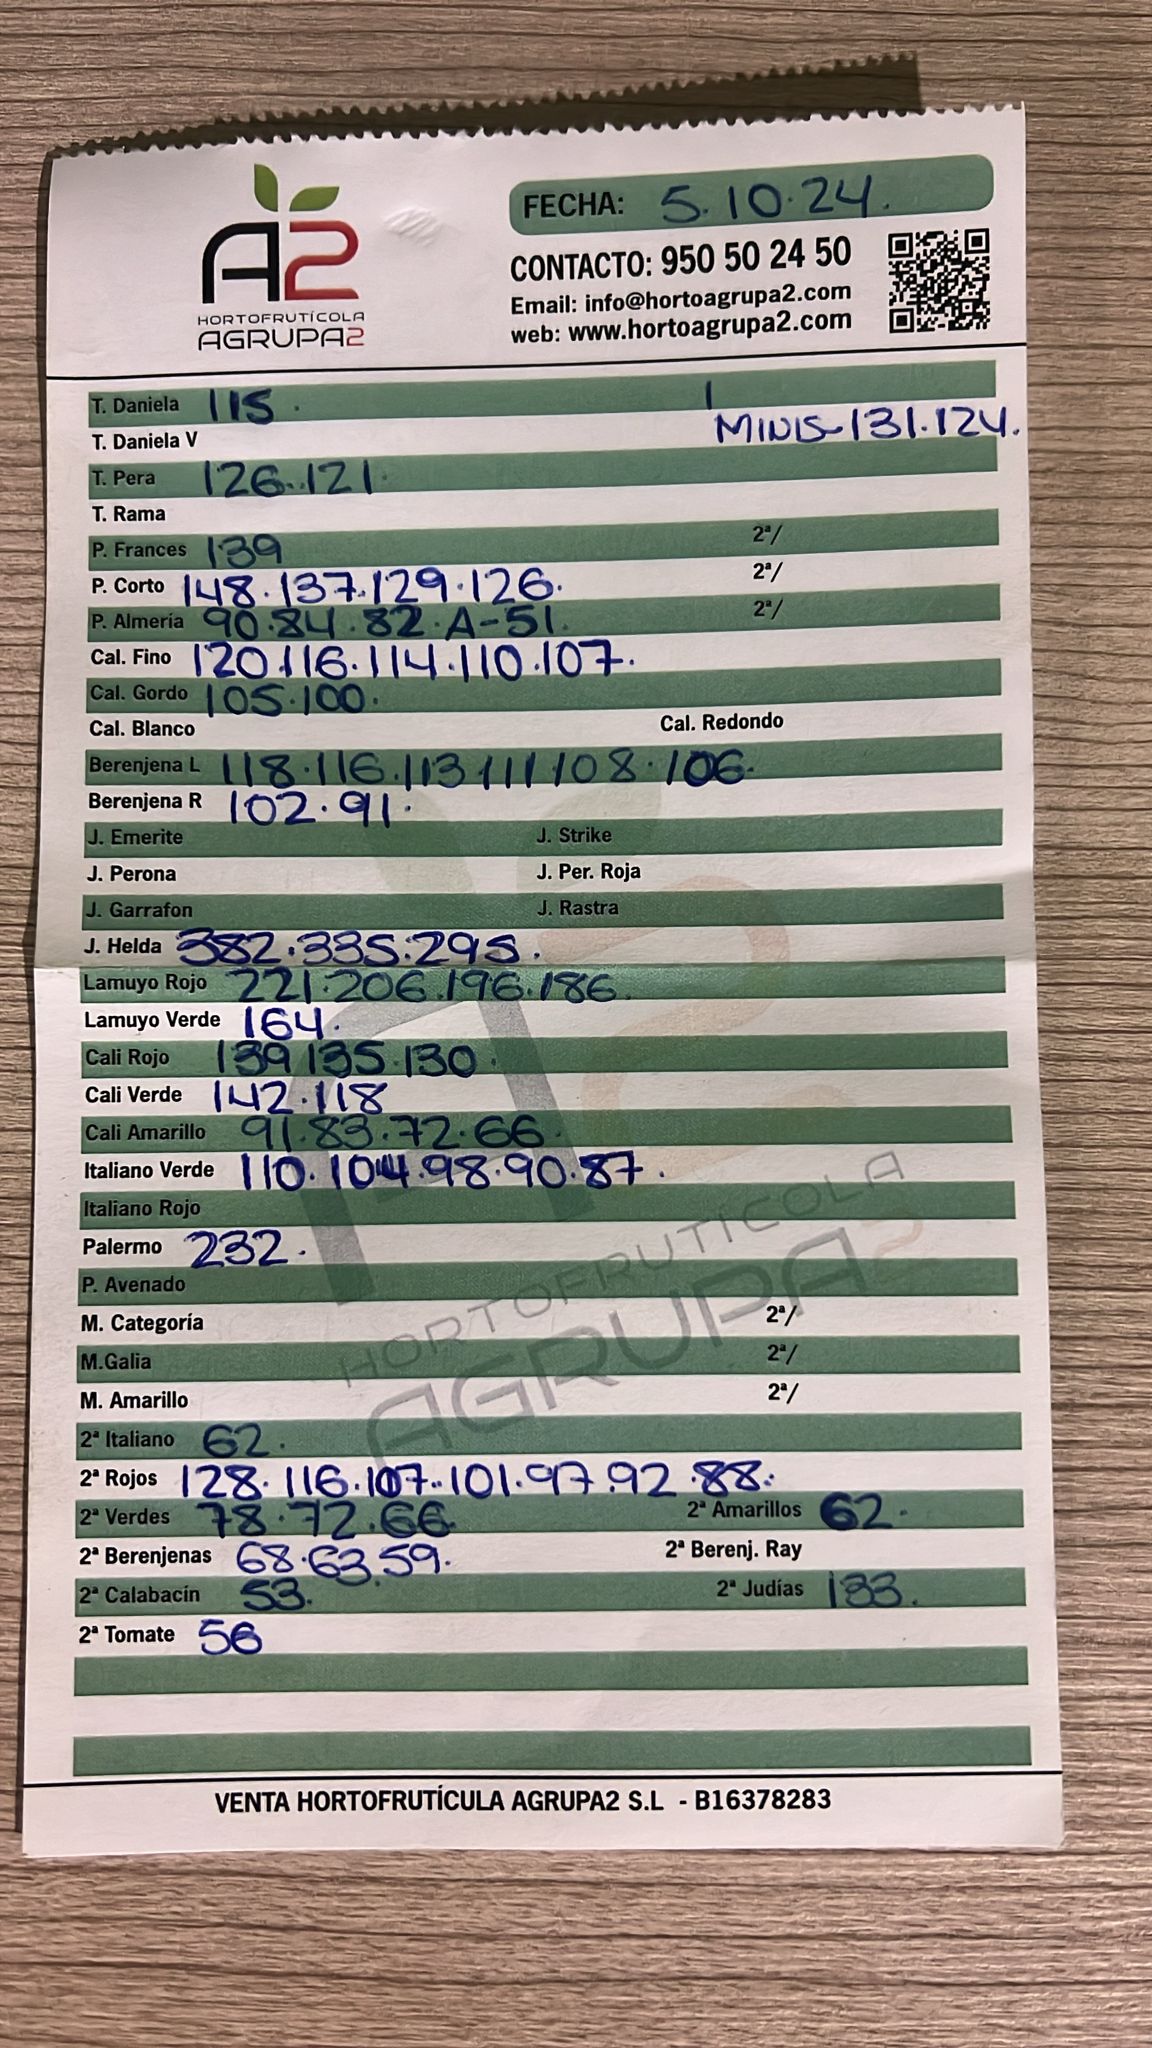 A2
HORTOFRUTÍCOLA
AGRUPA2
FECHA: 5.10.24.
CONTACTO: 950 50 24 50
Email: info@hortoagrupa2.com
web: www.hortoagrupa2.com
T. Daniela 115.
T. Daniela V MINIS-131.124.
T. Pera 126.121.
T. Rama
P. Frances 139 2ª/
P. Corto 148.137.129.126. 2ª/
P. Almería 90.84.82.A-51. 2ª/
Cal. Fino 120.116.114.110.107.
Cal. Gordo 105.100.
Cal. Blanco Cal. Redondo
Berenjena L 118.116.113.111.108.106.
Berenjena R 102.91.
J. Emerite J. Strike
J. Perona J. Per. Roja
J. Garrafon J. Rastra
J. Helda 382.335.295.
Lamuyo Rojo 221.206.196.186.
Lamuyo Verde 164.
Cali Rojo 139.135.130.
Cali Verde 142.118
Cali Amarillo 91.83.72.66.
Italiano Verde 110.104.98.90.87.
Italiano Rojo
Palermo 232.
P. Avenado
M. Categoría 2ª/
M.Galia 2ª/
M. Amarillo 2ª/
HORTOFRUTICOLA
AGRUPA2
2ª Italiano 62.
2ª Rojos 128.116.107.101.97.92.88.
2ª Verdes 78.72.66. 2ª Amarillos 62.
2ª Berenjenas 68.63.59. 2ª Berenj. Ray
2ª Calabacín 53. 2ª Judías 133.
2ª Tomate 56
VENTA HORTOFRUTÍCULA AGRUPA2 S.L - B16378283